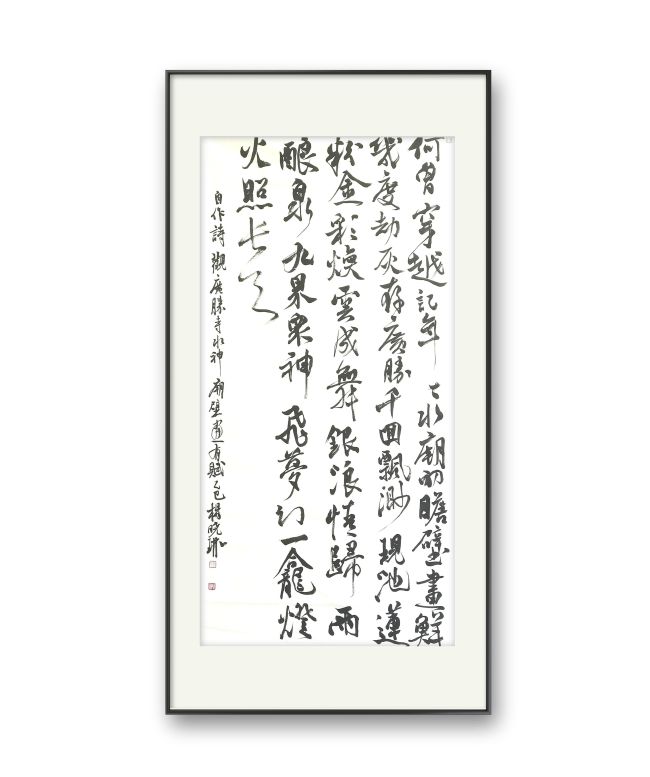 何曾穿越記年 水廟初瞻壁畫鮮
幾度劫灰存廣勝千回飄渺現池蓮
粉金彩煥雲成舞銀浪情歸雨
釀泉九界眾神飛夢幻一龕燈
火照長天
自作詩觀廣勝寺水神廟壁畫有賦乙巳楊曉琳